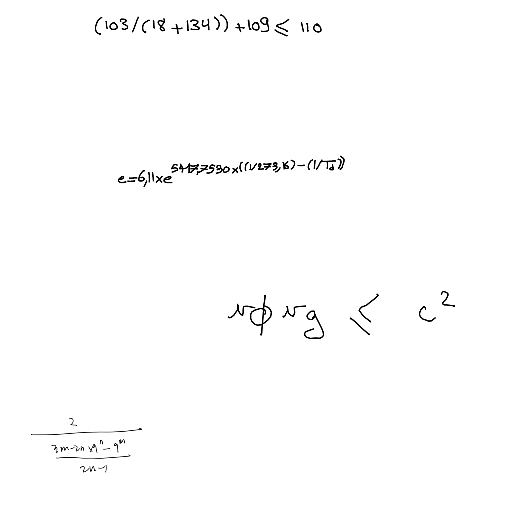 (103/(18+134))+109≤ 110
e=6,11xe^5417,7530x((1/273,16)-(1/Td))
vϕ vg ≤ c^2
2
3m-2n x9^n-9^m
2n-1